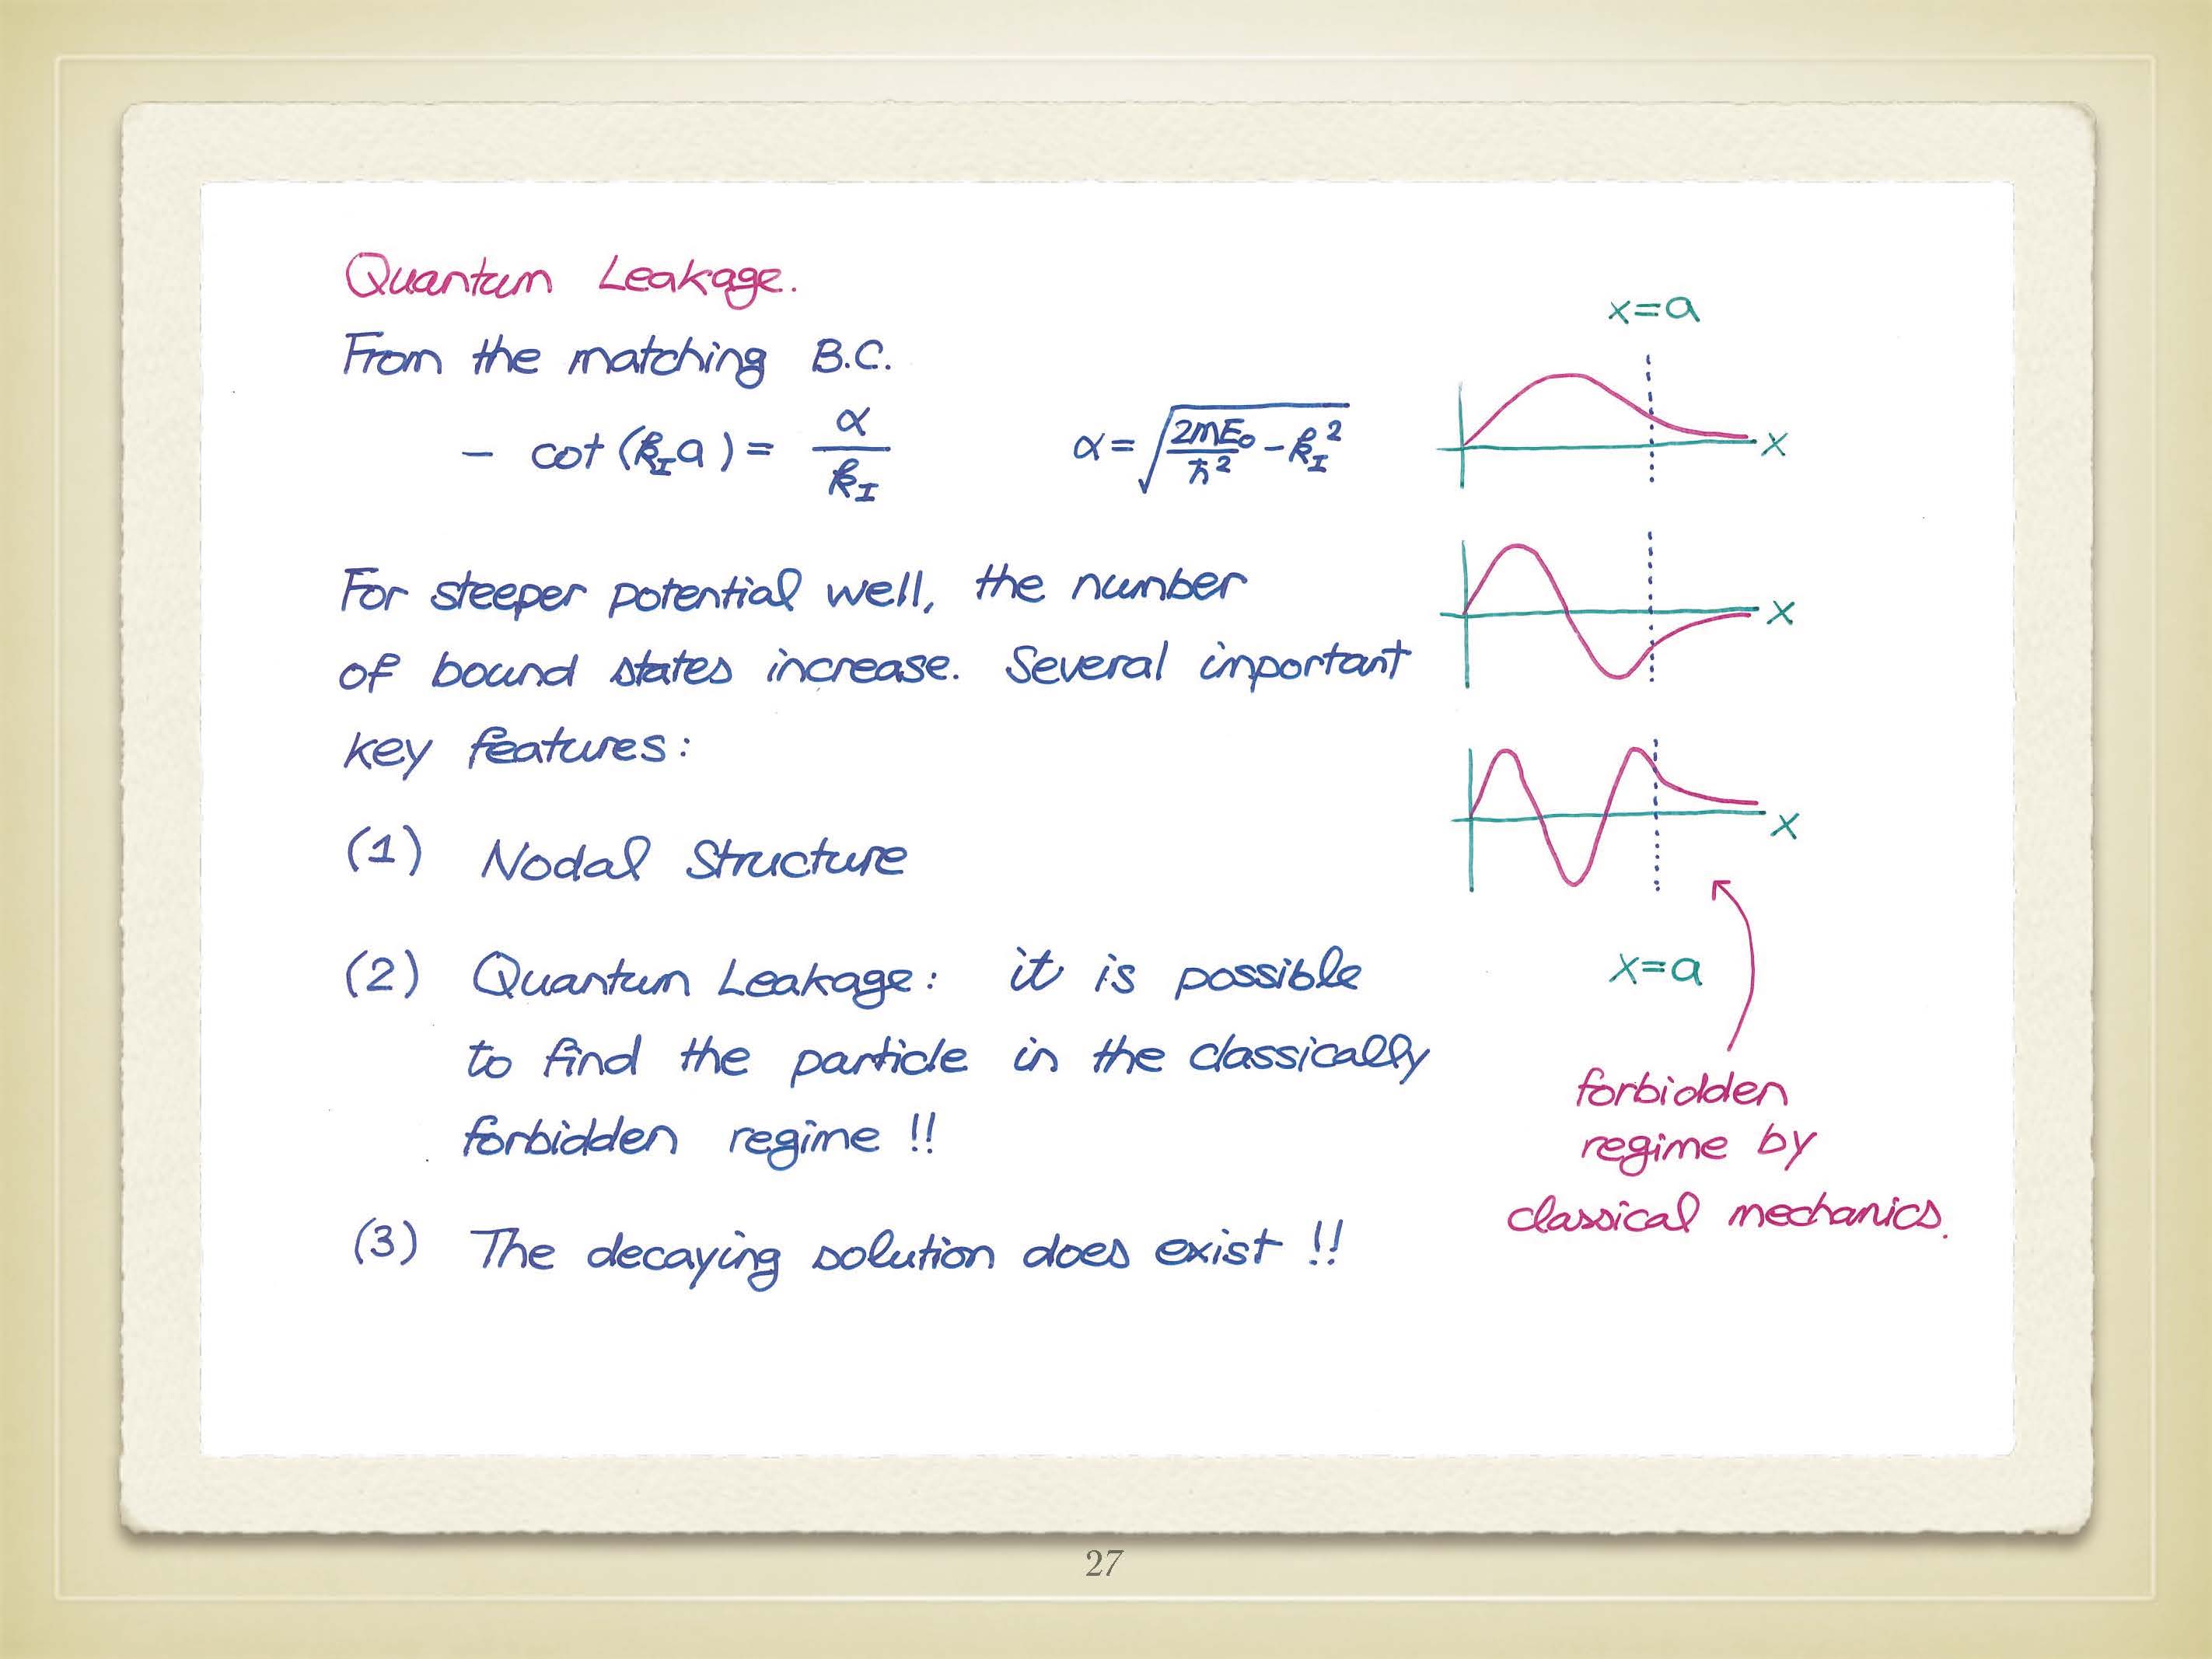 Quantum Leakage.
From the matching B.C.
- cot (k_I a) = α / k_I    α = √(2mE₀/ħ² - k_I²)
For steeper potential well, the number
of bound states increase. Several important
key features:
(1) Nodal Structure
(2) Quantum Leakage: it is possible
to find the particle in the classically
forbidden regime !!
(3) The decaying solution does exist !!
x=a
x
x
x
x=a
forbidden
regime by
classical mechanics.
27